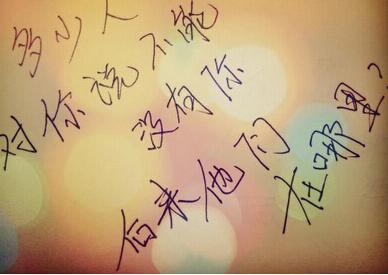 多少人
对你说不能
没有你
后来他们
在哪里？